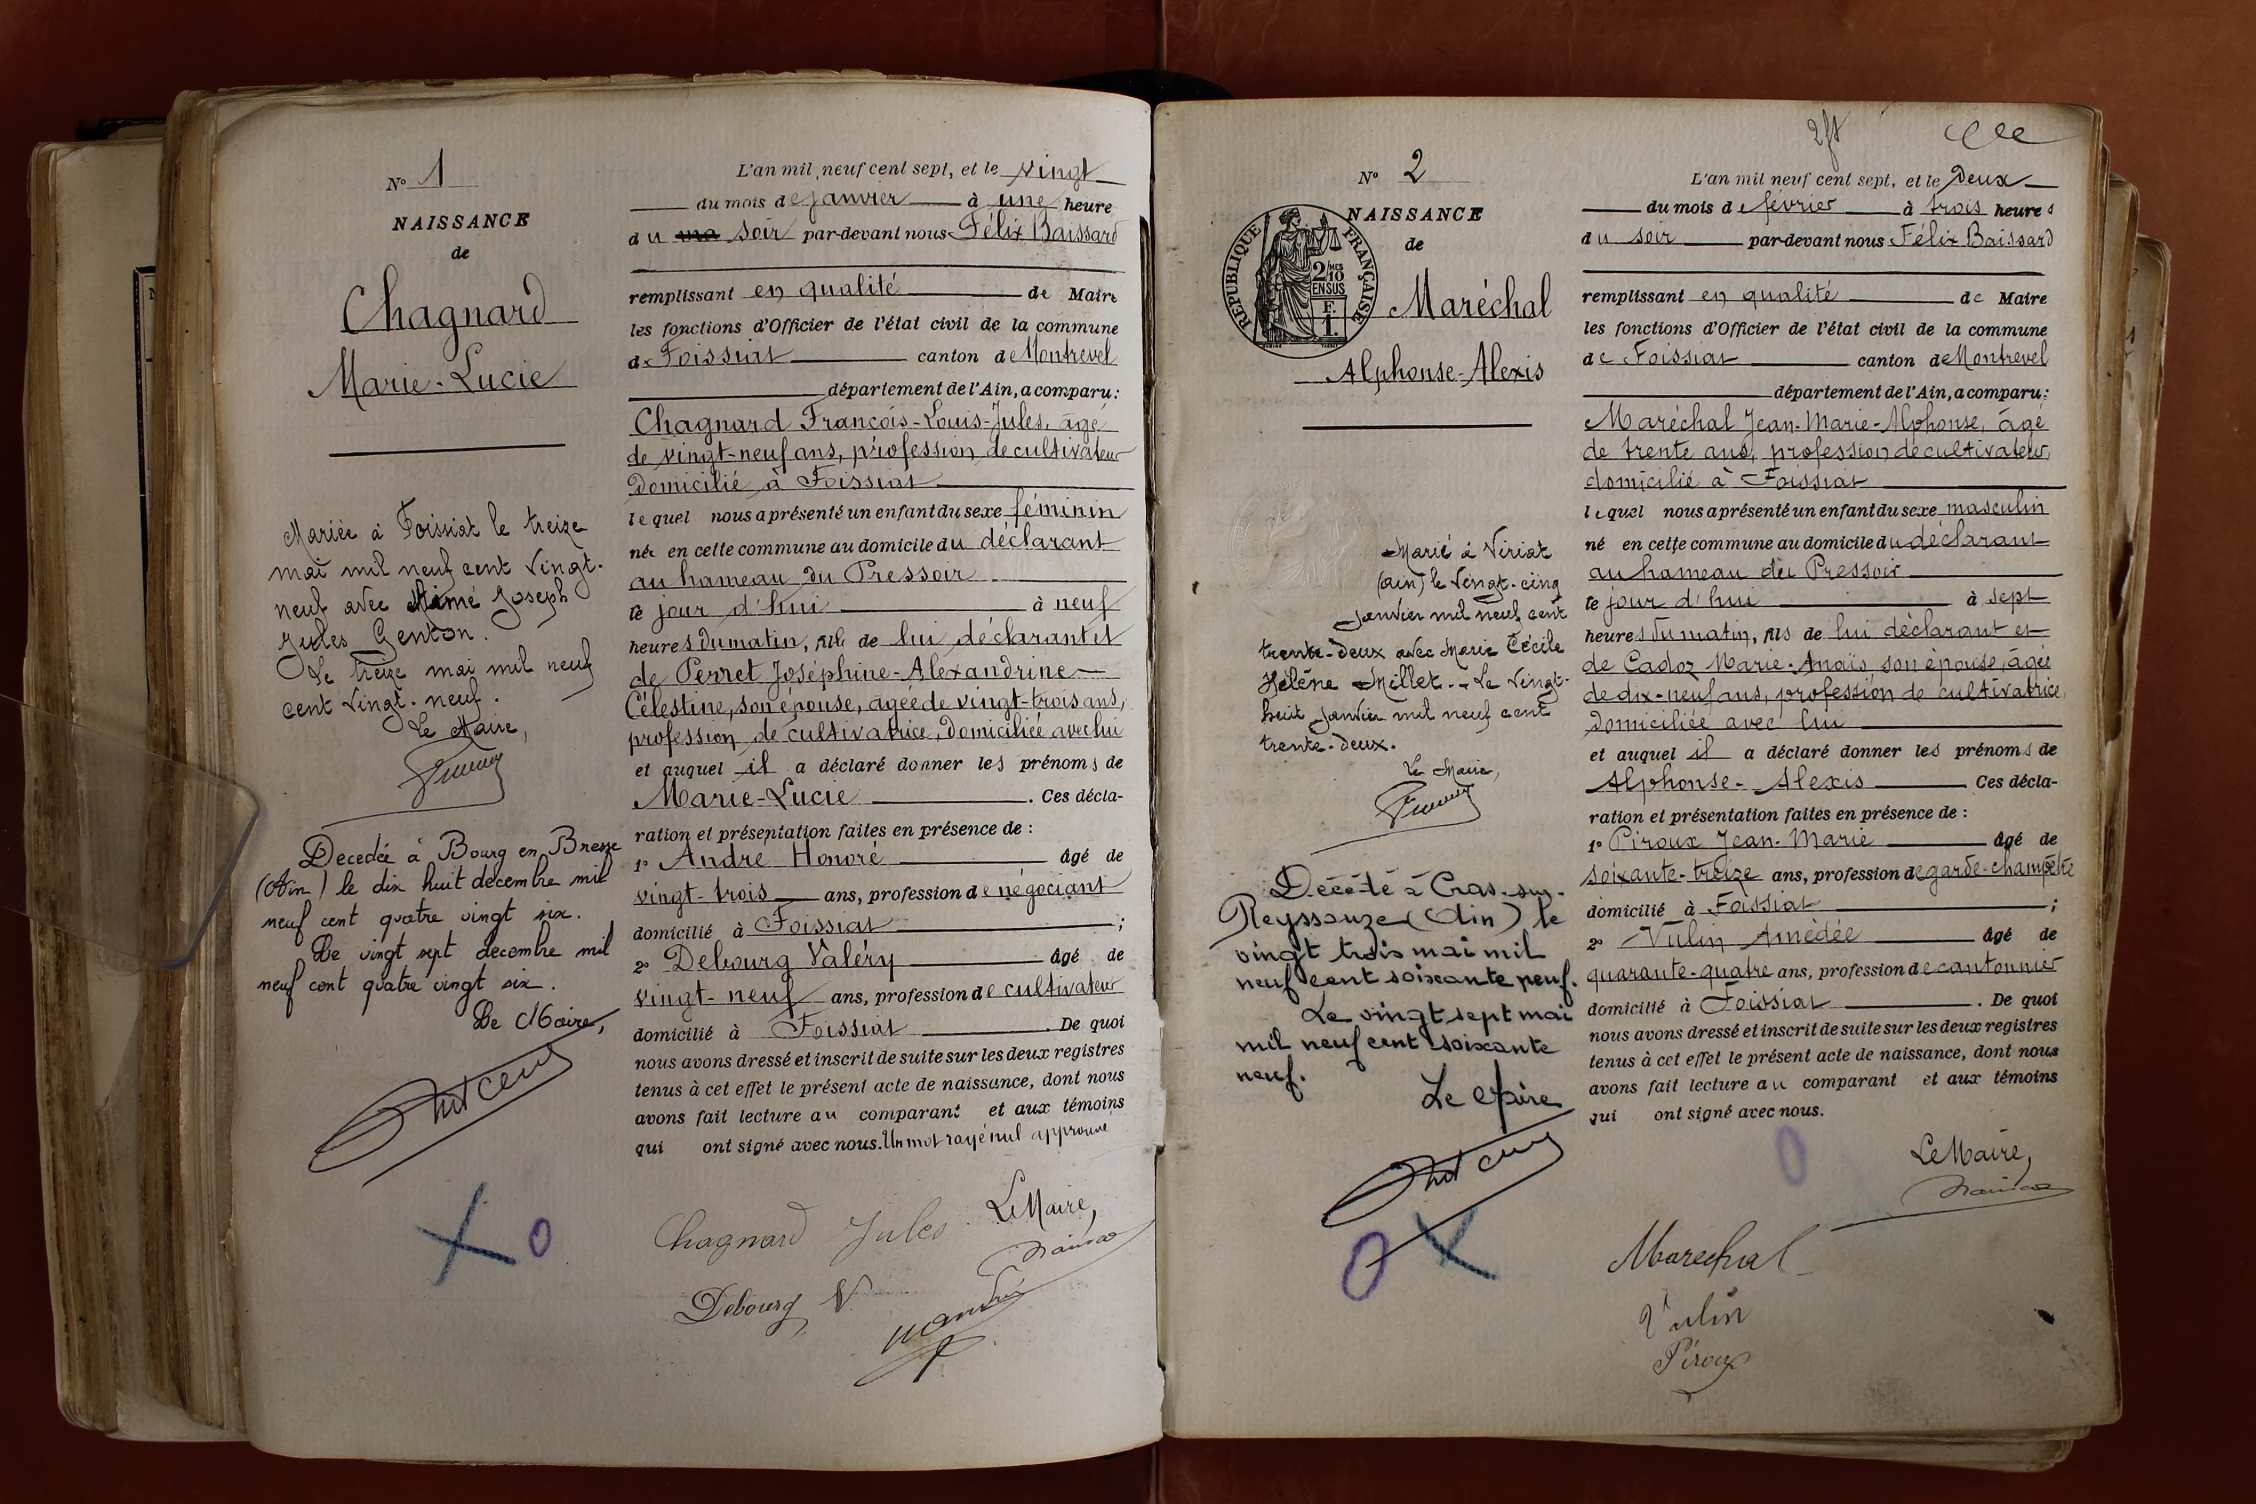 N° 1
NAISSANCE
de
Chagnard
Marie-Lucie
Mariée à Foissiat le treize
mai mil neuf cent vingt-
neuf avec Aimé Joseph
Jules Genton.
Le treize mai mil neuf
cent vingt-neuf.
Le Maire,
Decedée à Bourg en Bresse
(Ain) le dix huit decembre mil
neuf cent quatre vingt six.
Le vingt sept decembre mil
neuf cent quatre vingt six.
Le Maire,
L'an mil neuf cent sept, et le vingt
du mois de janvier à une heure
du soir par-devant nous Félix Baissard
remplissant en qualité de Maire
les fonctions d'Officier de l'état civil de la commune
de Foissiat canton de Montrevel
département de l'Ain, a comparu:
Chagnard François-Louis-Jules, âgé
de vingt-neuf ans, profession de cultivateur
domicilié à Foissiat
lequel nous a présenté un enfant du sexe féminin
née en cette commune au domicile du déclarant
au hameau du Pressoir
le jour d'hui à neuf
heures du matin, fille de lui déclarant et
de Perret Joséphine-Alexandrine
Célestine, son épouse, âgée de vingt-trois ans,
profession de cultivatrice, domiciliée avec lui
et auquel il a déclaré donner les prénoms de
Marie-Lucie . Ces décla-
ration et présentation faites en présence de :
1° André Honoré âgé de
vingt-trois ans, profession de négociant
domicilié à Foissiat ;
2° Debourg Valéry âgé de
vingt-neuf ans, profession de cultivateur
domicilié à Foissiat . De quoi
nous avons dressé et inscrit de suite sur les deux registres
tenus à cet effet le présent acte de naissance, dont nous
avons fait lecture au comparant et aux témoins
qui ont signé avec nous. Un mot rayé nul approuvé
Le Maire,
Chagnard Jules
Debourg V
N° 2
NAISSANCE
de
RÉPUBLIQUE FRANÇAISE
2/10 MES
EN SUS
F.
1.
Maréchal
Alphonse-Alexis
Marié à Viriat
(Ain) le vingt-cinq
janvier mil neuf cent
trente-deux avec Marie Cécile
Hélène Millet. - Le vingt-
huit janvier mil neuf cent
trente-deux.
Le Maire,
Décédé à Cras-sur-
Reyssouze (Ain) le
vingt trois mai mil
neuf cent soixante neuf.
Le vingt sept mai
mil neuf cent soixante
neuf.
Le Maire
L'an mil neuf cent sept, et le deux
du mois de février à trois heures
du soir par-devant nous Félix Baissard
remplissant en qualité de Maire
les fonctions d'Officier de l'état civil de la commune
de Foissiat canton de Montrevel
département de l'Ain, a comparu:
Maréchal Jean-Marie-Alphonse, âgé
de trente ans, profession de cultivateur,
domicilié à Foissiat
lequel nous a présenté un enfant du sexe masculin
né en cette commune au domicile du déclarant
au hameau du Pressoir
le jour d'hui à sept
heures du matin, fils de lui déclarant et
de Cadoz Marie-Anaïs son épouse, âgée
de dix-neuf ans, profession de cultivatrice,
domiciliée avec lui
et auquel il a déclaré donner les prénoms de
Alphonse-Alexis Ces décla-
ration et présentation faites en présence de :
1° Piroux Jean-Marie âgé de
soixante-treize ans, profession de garde-champêtre
domicilié à Foissiat ;
2° Vulin Amédée âgé de
quarante-quatre ans, profession de cantonnier
domicilié à Foissiat . De quoi
nous avons dressé et inscrit de suite sur les deux registres
tenus à cet effet le présent acte de naissance, dont nous
avons fait lecture au comparant et aux témoins
qui ont signé avec nous.
Le Maire,
Marechal
Vulin
Piroux